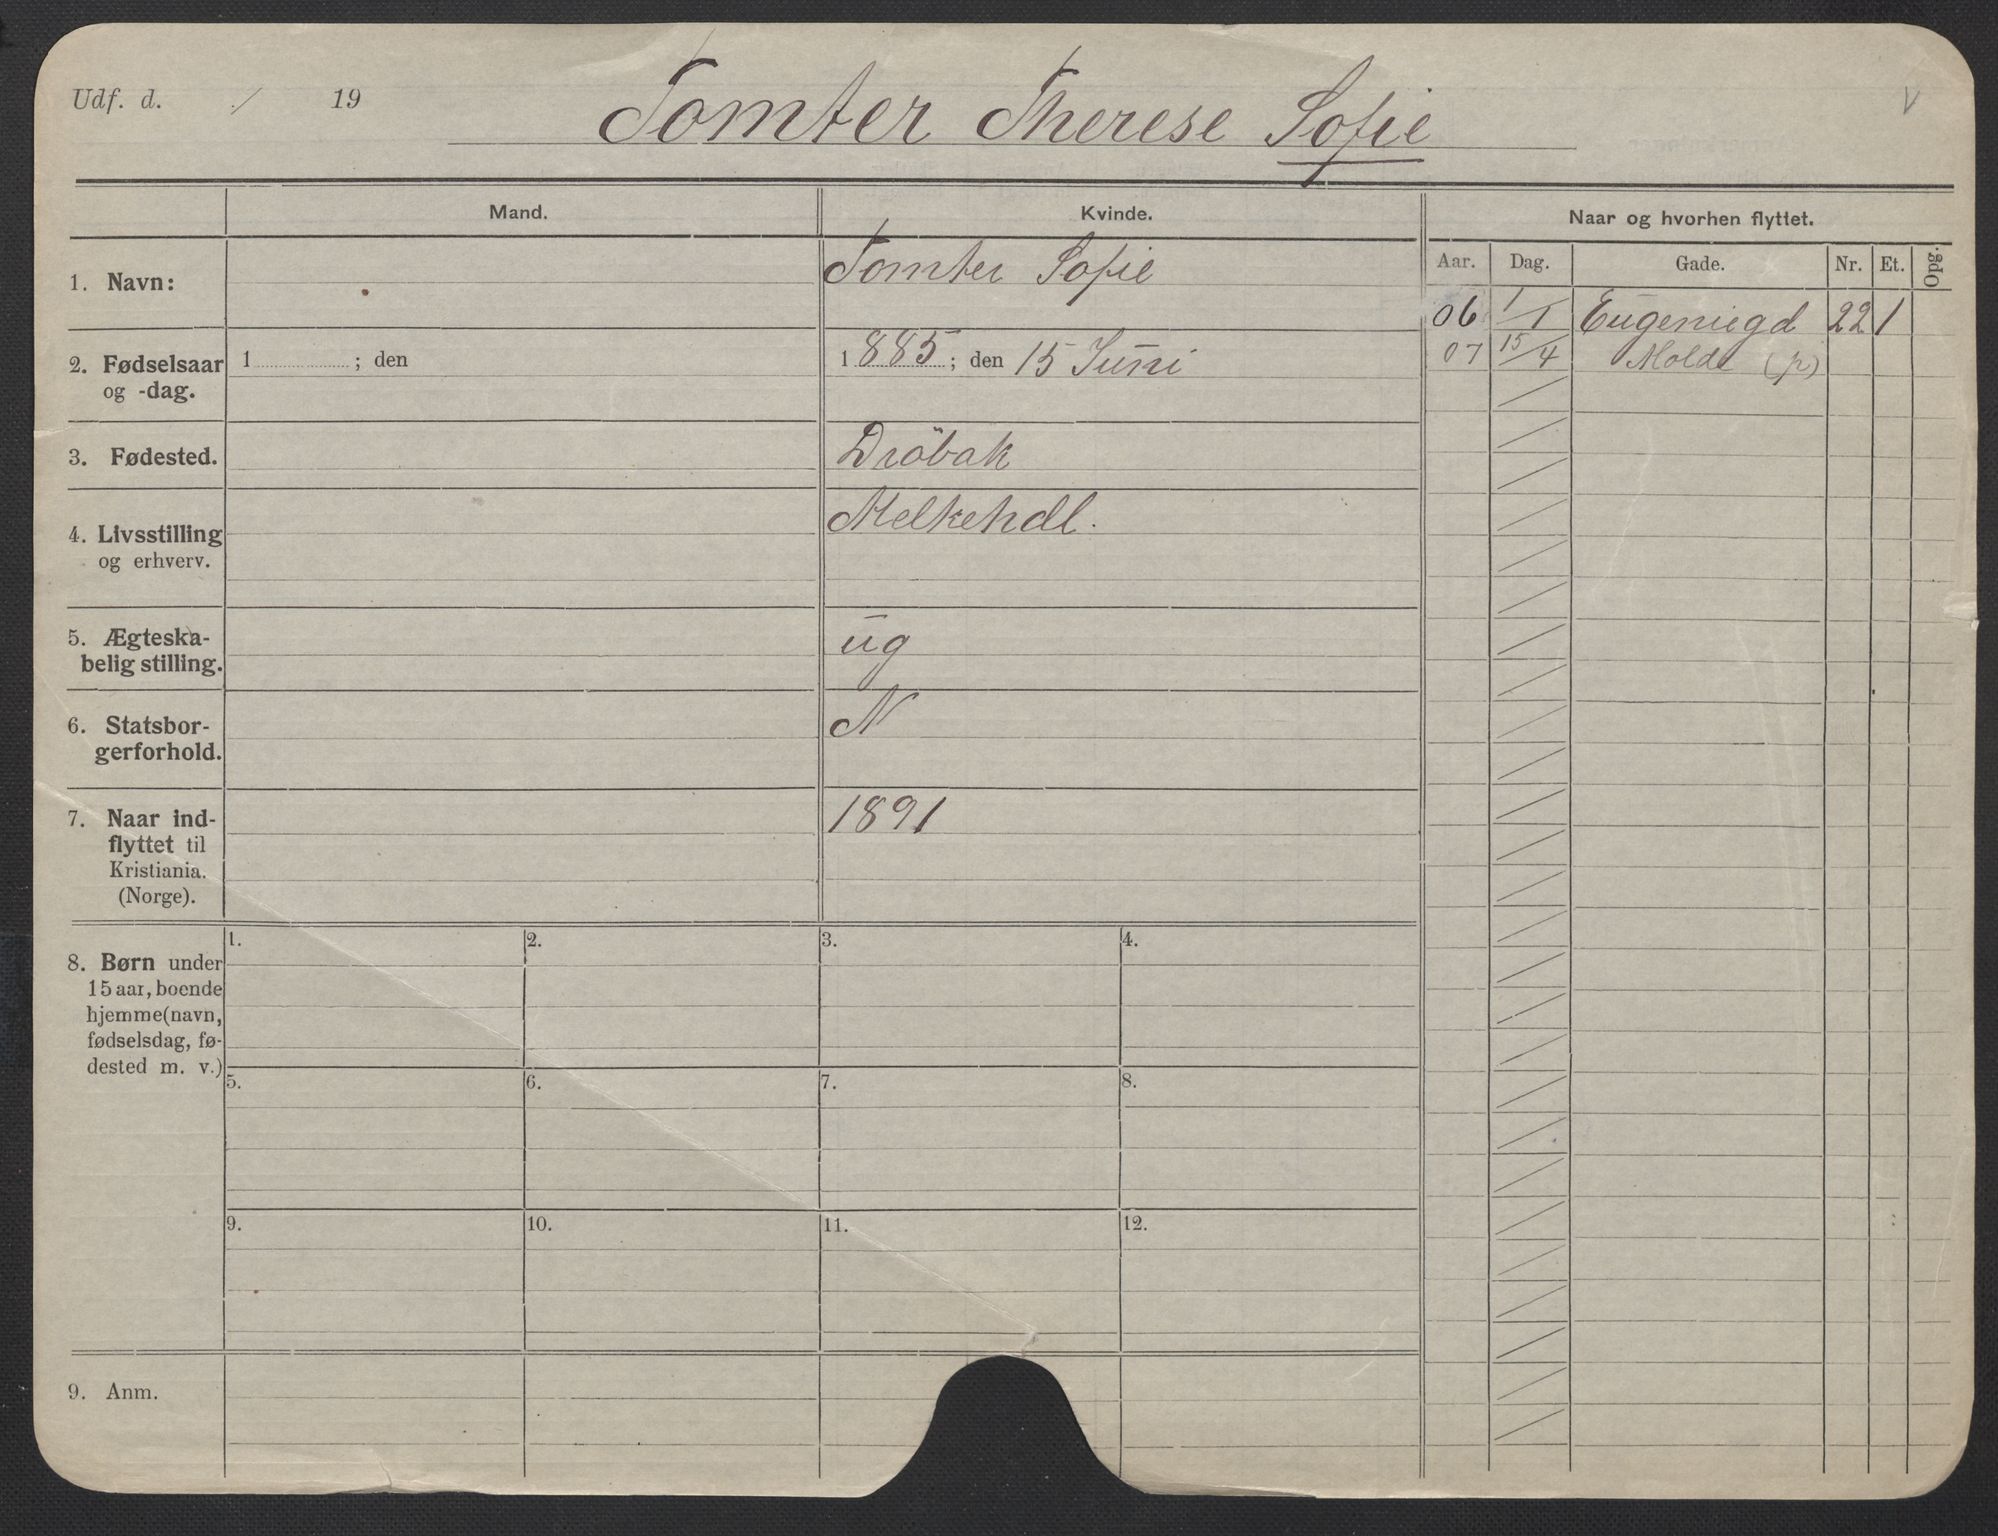 Udf. d. / 19
Tomter Therese Sofie
V
Mand.
Kvinde.
Naar og hvorhen flyttet.
Aar. Dag. Gade. Nr. Et. Opg.
1. Navn:
Tomter Sofie
06 1/1 Eugeniegd 22 1
07 15/4 Molde (p)
2. Fødselsaar
og -dag.
1 ; den
1885; den 15 Juni
3. Fødested.
Dröbak
4. Livsstilling
og erhverv.
Melkehdl.
5. Ægteska-
belig stilling.
ug
6. Statsbor-
gerforhold.
N
7. Naar ind-
flyttet til
Kristiania.
(Norge).
1891
8. Børn under
15 aar, boende
hjemme (navn,
fødselsdag, fø-
dested m. v.)
1. 2. 3. 4.
5. 6. 7. 8.
9. 10. 11. 12.
9. Anm.